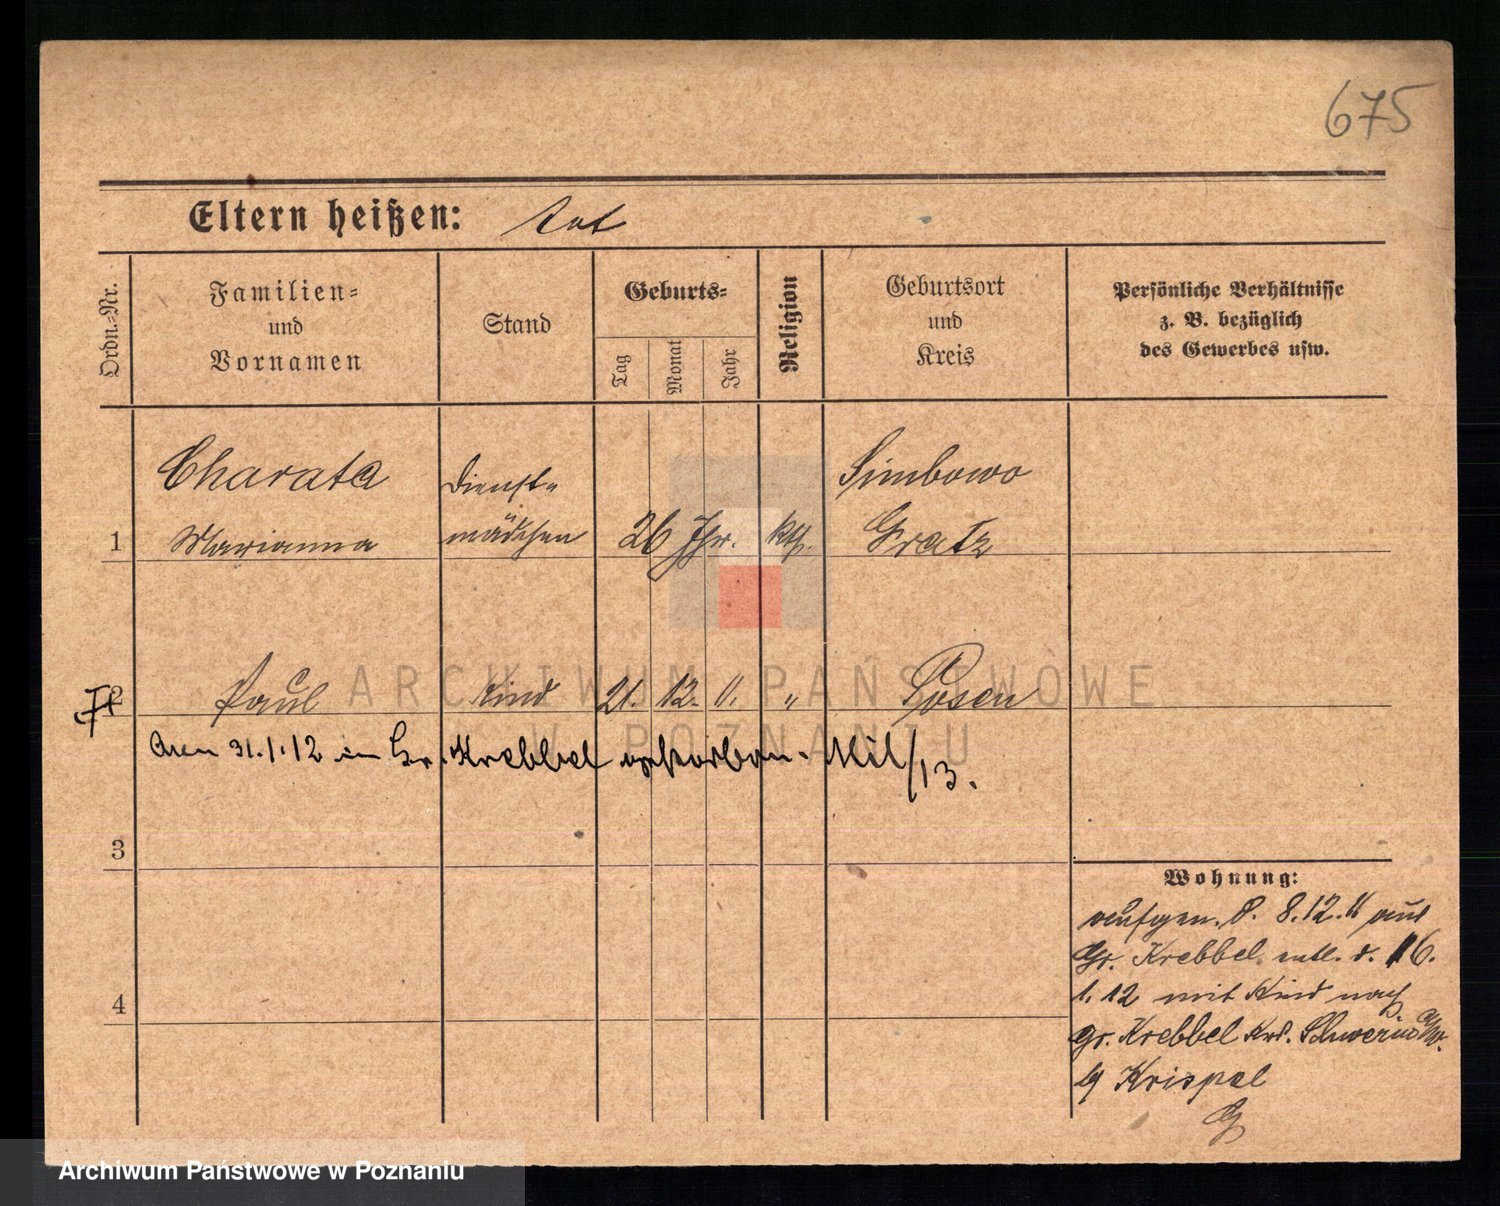 675
Eltern heißen: tot
Ordn.-Nr.
Familien-
und
Vornamen
Stand
Geburts-
Tag
Monat
Jahr
Religion
Geburtsort
und
Kreis
Persönliche Verhältnisse
z. B. bezüglich
des Gewerbes usw.
Charata Dienst- Simbowo
1 Marianna mädchen 26 Jhr. kth. Gratz
2 Paul Kind 21. 12. 11. " Posen
31.1.12 in Gr. Krebbel verstorben. Mil/13.
3
4
Wohnung:
aufgen. d. 8.12.11 aus
Gr. Krebbel entl. d. 16.
1. 12 mit Kind nach
Gr. Krebbel Krs. Schwerin a/W.
b/ Krispel
ARCHIWUM PAŃSTWOWE
W POZNANIU
Archiwum Państwowe w Poznaniu